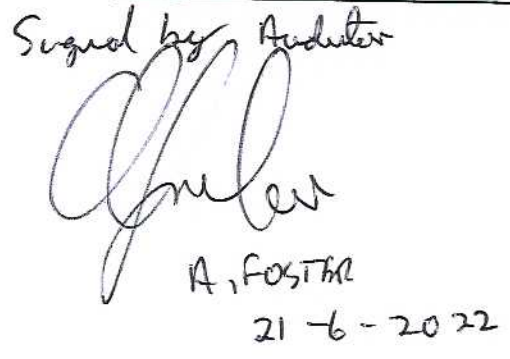 Signed by Auditor
A. FOSTER
21-6-2022